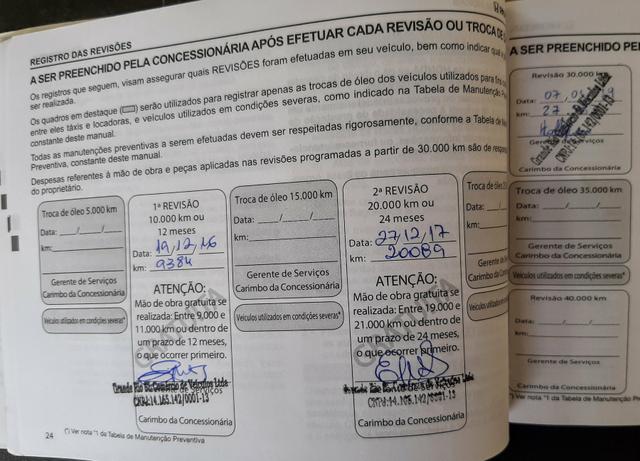 REGISTRO DAS REVISÕES
A SER PREENCHIDO PELA CONCESSIONÁRIA APÓS EFETUAR CADA REVISÃO OU TROCA DE
Os registros que seguem, visam assegurar quais REVISÕES foram efetuadas em seu veículo, bem como indicar qual
ser realizada.
Os quadros em destaque ( ) serão utilizados para registrar apenas as trocas de óleo dos veículos utilizados para
entre eles táxis e locadoras, e veículos utilizados em condições severas, como indicado na Tabela de Manutenção
constante deste manual.
Todas as manutenções preventivas a serem efetuadas devem ser respeitadas rigorosamente, conforme a Tabela de
Preventiva, constante deste manual.
Despesas referentes à mão de obra e peças aplicadas nas revisões programadas a partir de 30.000 km são de
do proprietário.
Troca de óleo 5.000 km
Data: ___/___/___
km:
Gerente de Serviços
Carimbo da Concessionária
Veículos utilizados em condições severas*
1ª REVISÃO
10.000 km ou
12 meses
Data: 19/12/16
km: 9384
ATENÇÃO:
Mão de obra gratuita se
realizada: Entre 9.000 e
11.000 km ou dentro de
um prazo de 12 meses,
o que ocorrer primeiro.
GRATUITA
CNPJ:14.165.142/0001-13
Carimbo da Concessionária
Troca de óleo 15.000 km
Data: ___/___/___
km:
Gerente de Serviços
Carimbo da Concessionária
Veículos utilizados em condições severas*
2ª REVISÃO
20.000 km ou
24 meses
Data: 27/12/17
km: 20089
ATENÇÃO:
Mão de obra gratuita se
realizada: Entre 19.000 e
21.000 km ou dentro de
um prazo de 24 meses,
o que ocorrer primeiro.
GRATUITA
CNPJ:14.165.142/0001-13
Carimbo da Concessionária
Troca de óleo
Data:
km:
24
(*) Ver nota *1 da Tabela de Manutenção Preventiva
A SER PREENCHIDO PE
Revisão 30.000 km
Data: 07
km: 27
Carimbo da Concessionária
Troca de óleo 35.000 km
Data: ___/___/___
km:
Gerente de Serviços
Carimbo da Concessionária
Veículos utilizados em condições severas*
Revisão 40.000 km
Data: ___/___/___
km:
Gerente de Serviços
Carimbo da Concessionária
(*) Ver nota *1 da Tabela de Manutenção Prev